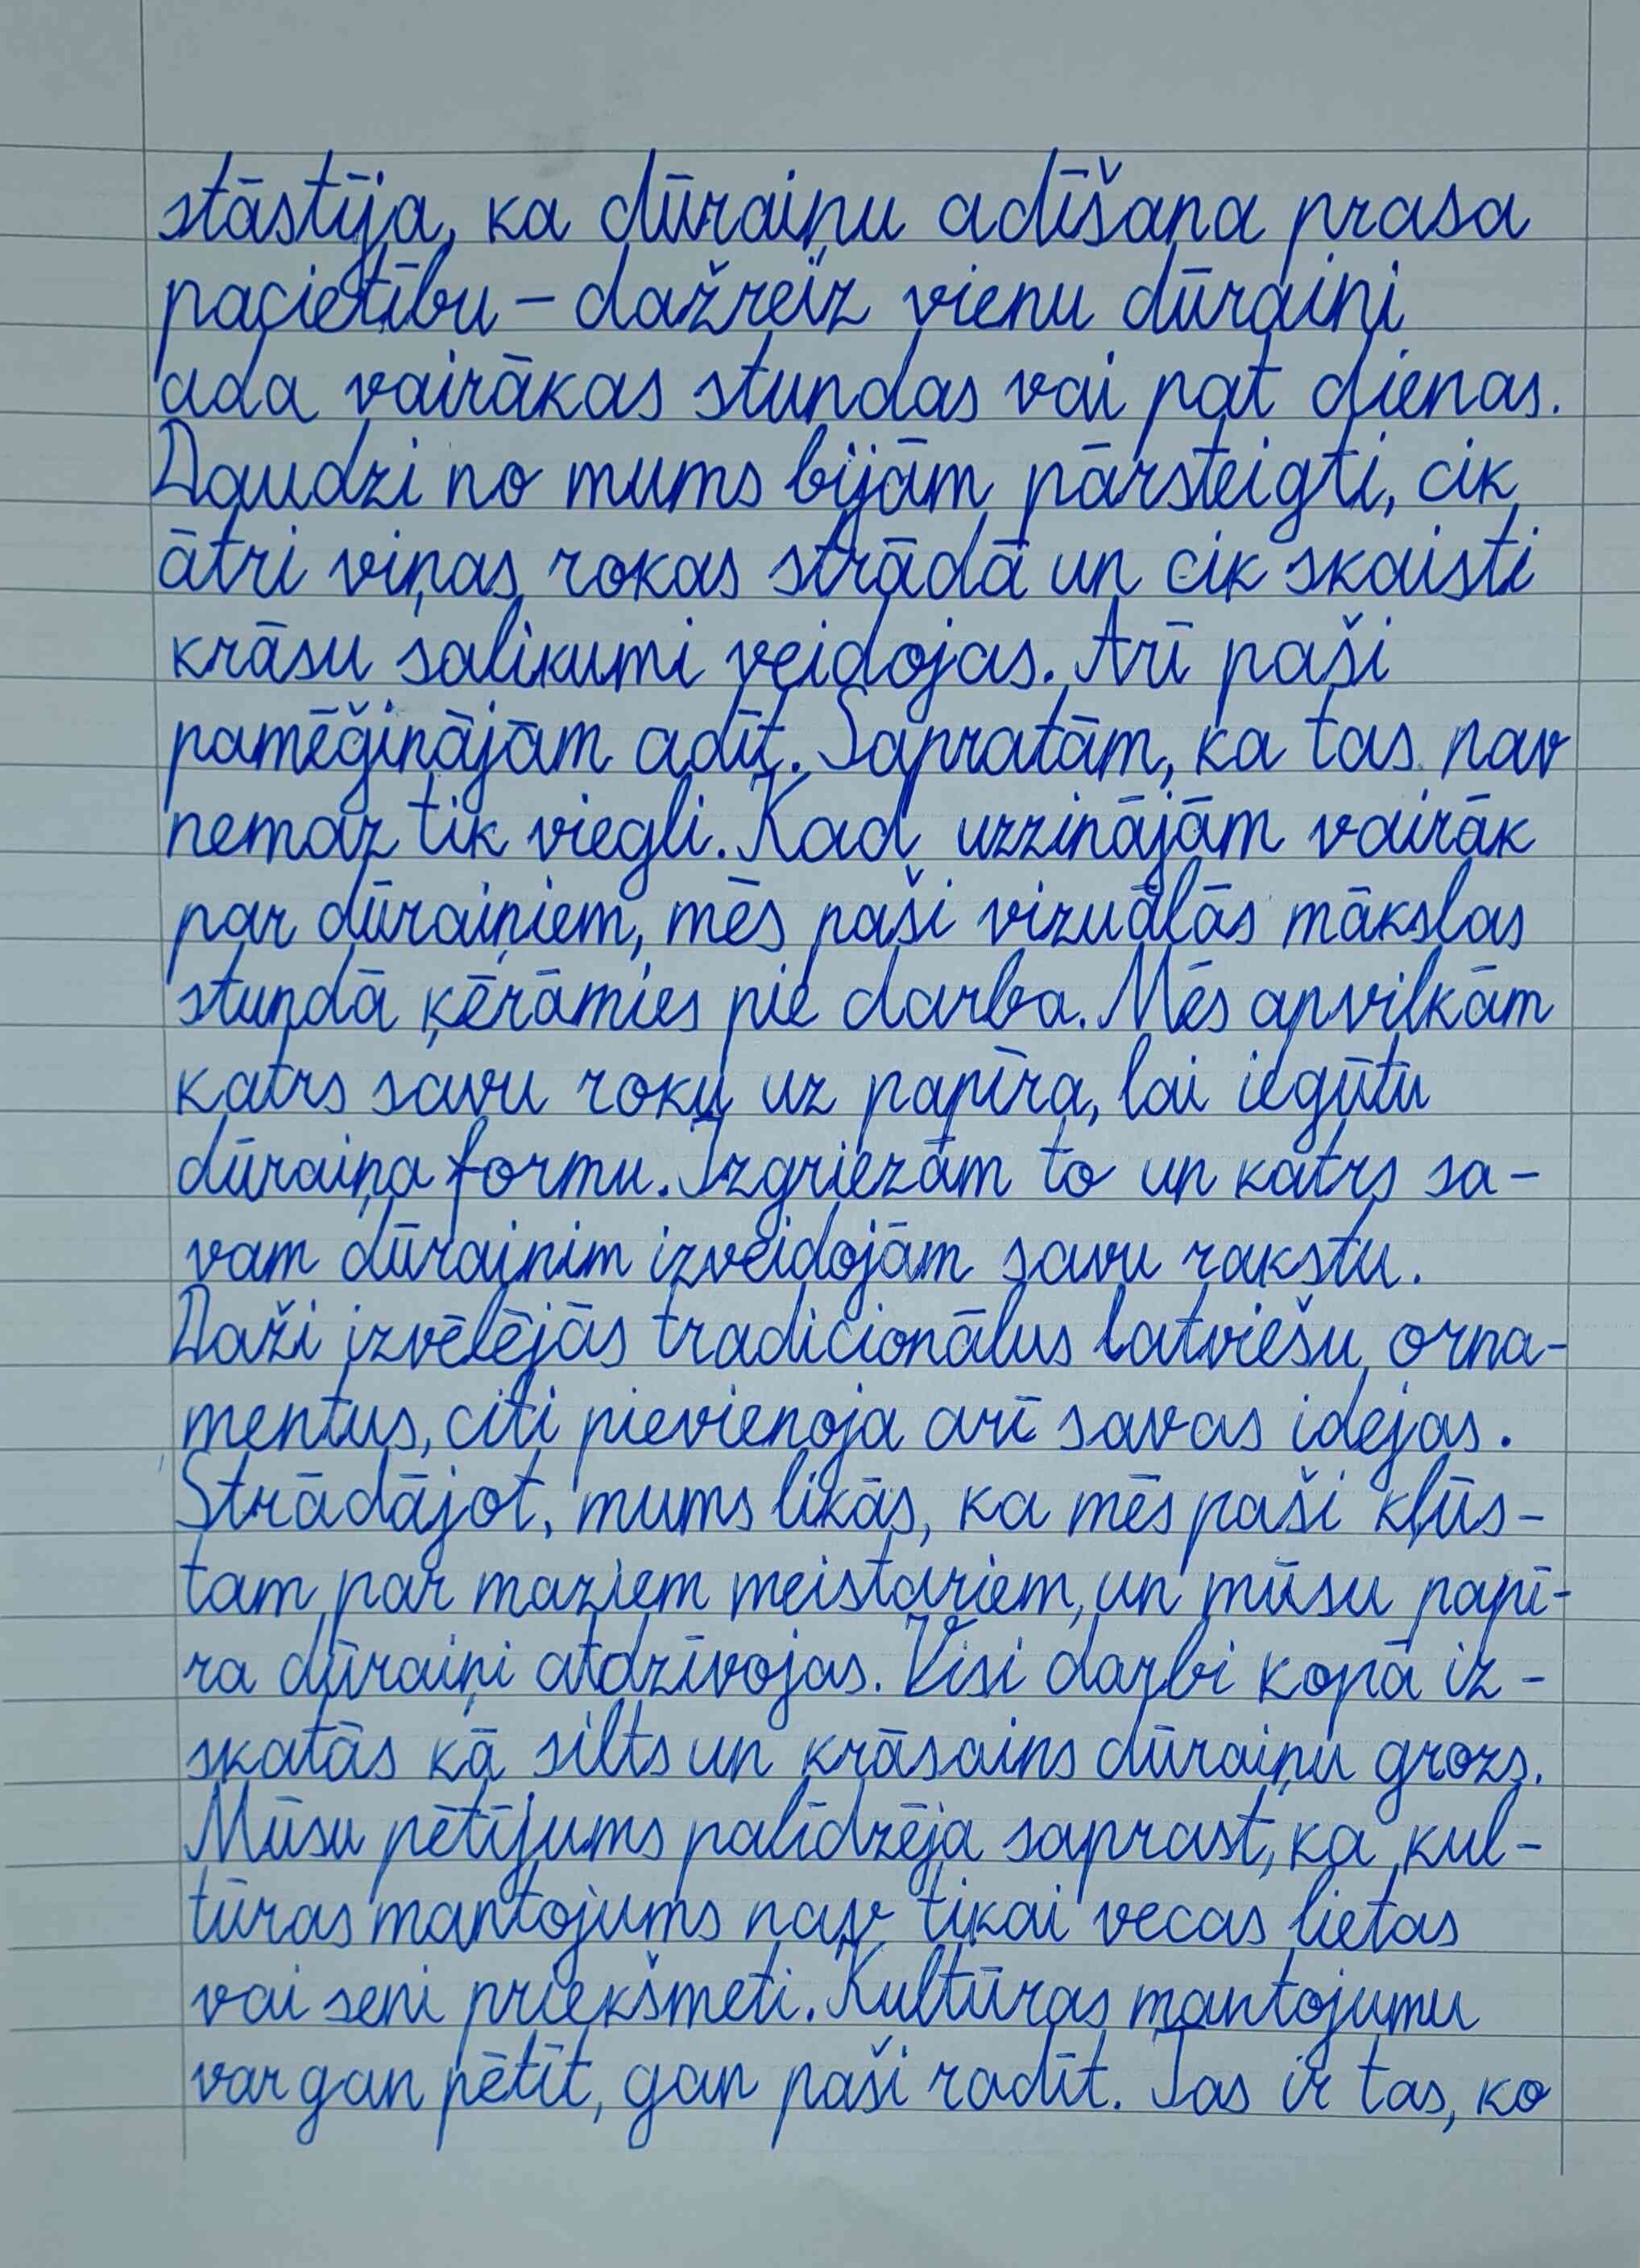 stāstīja, ka dūraiņu adīšana prasa
pacietību – dažreiz vienu dūraini
ada vairākas stundas vai pat dienas.
Daudzi no mums bijām pārsteigti, cik
ātri viņas rokas strādā un cik skaisti
krāsu salikumi veidojas. Arī paši
pamēģinājām adīt. Sapratām, ka tas nav
nemaz tik viegli. Kad uzzinājām vairāk
par dūraiņiem, mēs paši vizuālās mākslas
stundā ķērāmies pie darba. Mēs apvilkām
katrs savu roku uz papīra, lai iegūtu
dūraiņa formu. Izgriezām to un katrs sa-
vam dūrainim izveidojām savu rakstu.
Daži izvēlējās tradicionālus latviešu orna-
mentus, citi pievienoja arī savas idejas.
Strādājot, mums likās, ka mēs paši kļūs-
tam par maziem meistariem, un mūsu papī-
ra dūraiņi atdzīvojas. Visi darbi kopā iz-
skatās kā silts un krāsains dūraiņu grozs.
Mūsu pētījums palīdzēja saprast, ka kul-
tūras mantojums nav tikai vecas lietas
vai seni priekšmeti. Kultūras mantojumu
var gan pētīt, gan paši radīt. Tas ir tas, ko